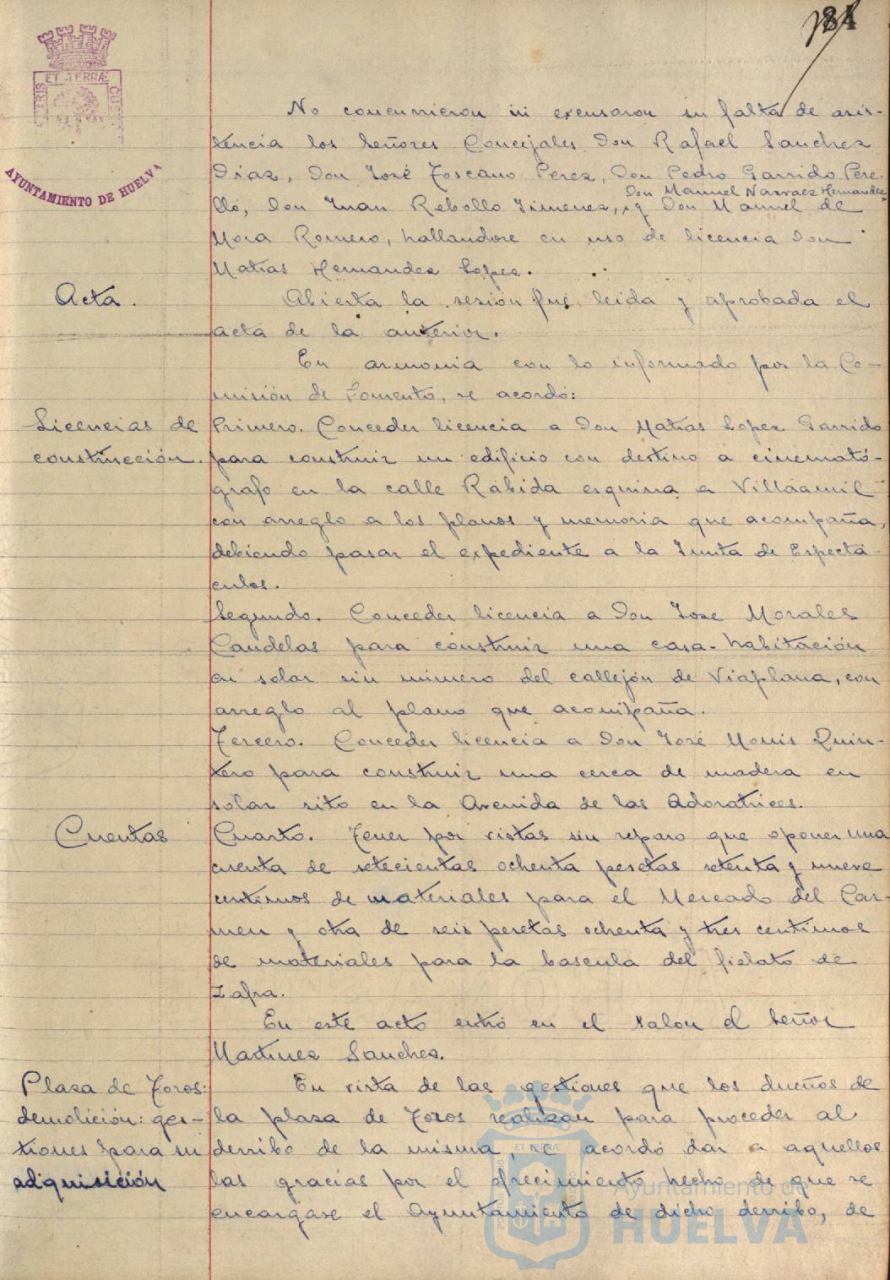 81
PORTUS MARIS ET TERRÆ CUSTODIA
AYUNTAMIENTO DE HUELVA
No concurrieron ni excusaron su falta de asis-
tencia los Señores Concejales Don Rafael Sanchez
Diaz, Don José Toscano Perez, Don Pedro Garrido Pere-
Don Manuel Narvaez Hernandez
lló, Don Juan Rebollo Jimenez, y Don Manuel de
Mora Romero, hallandose en uso de licencia Don
Matias Hernandez Lopez.
Acta.
Abierta la sesión fué leida y aprobada el
acta de la anterior.
En armonia con lo informado por la Co-
misión de Fomento, se acordó:
Licencias de
construcción.
Primero. Conceder licencia a Don Matias Lopez Garrido
para construir un edificio con destino a cinemató-
grafo en la calle Rábida esquina a Villaamil
con arreglo a los planos y memoria que acompaña,
debiendo pasar el expediente a la Junta de Espectá-
culos.
Segundo. Conceder licencia a Don Jose Morales
Candelas para construir una casa-habitación
en solar sin número del callejón de Viaplana, con
arreglo al plano que acompaña.
Tercero. Conceder licencia a Don José Monis Quin-
tero para construir una cerca de madera en
solar sito en la Avenida de las Adoratrices.
Cuentas
Cuarto. Tener por vistas sin reparo que oponer una
cuenta de setecientas ochenta pesetas setenta y nueve
centimos de materiales para el Mercado del Car-
men y otra de seis pesetas ochenta y tres centimos
de materiales para la bascula del fielato de
Zafra.
En este acto entró en el salon el Señor
Martinez Sanchez.
Plaza de Toros:
demolición: ges-
tiones para su
adquisición
En vista de las gestiones que los dueños de
la plaza de Toros realizan para proceder al
derribo de la misma, se acordó dar a aquellos
las gracias por el ofrecimiento hecho de que se
encargase el Ayuntamiento de dicho derribo, de
Ayuntamiento de
HUELVA